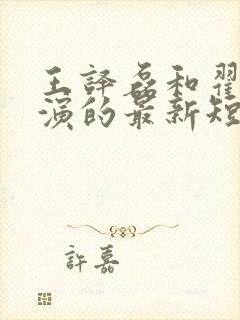 王譯磊和翟
演的最新短
許嘉